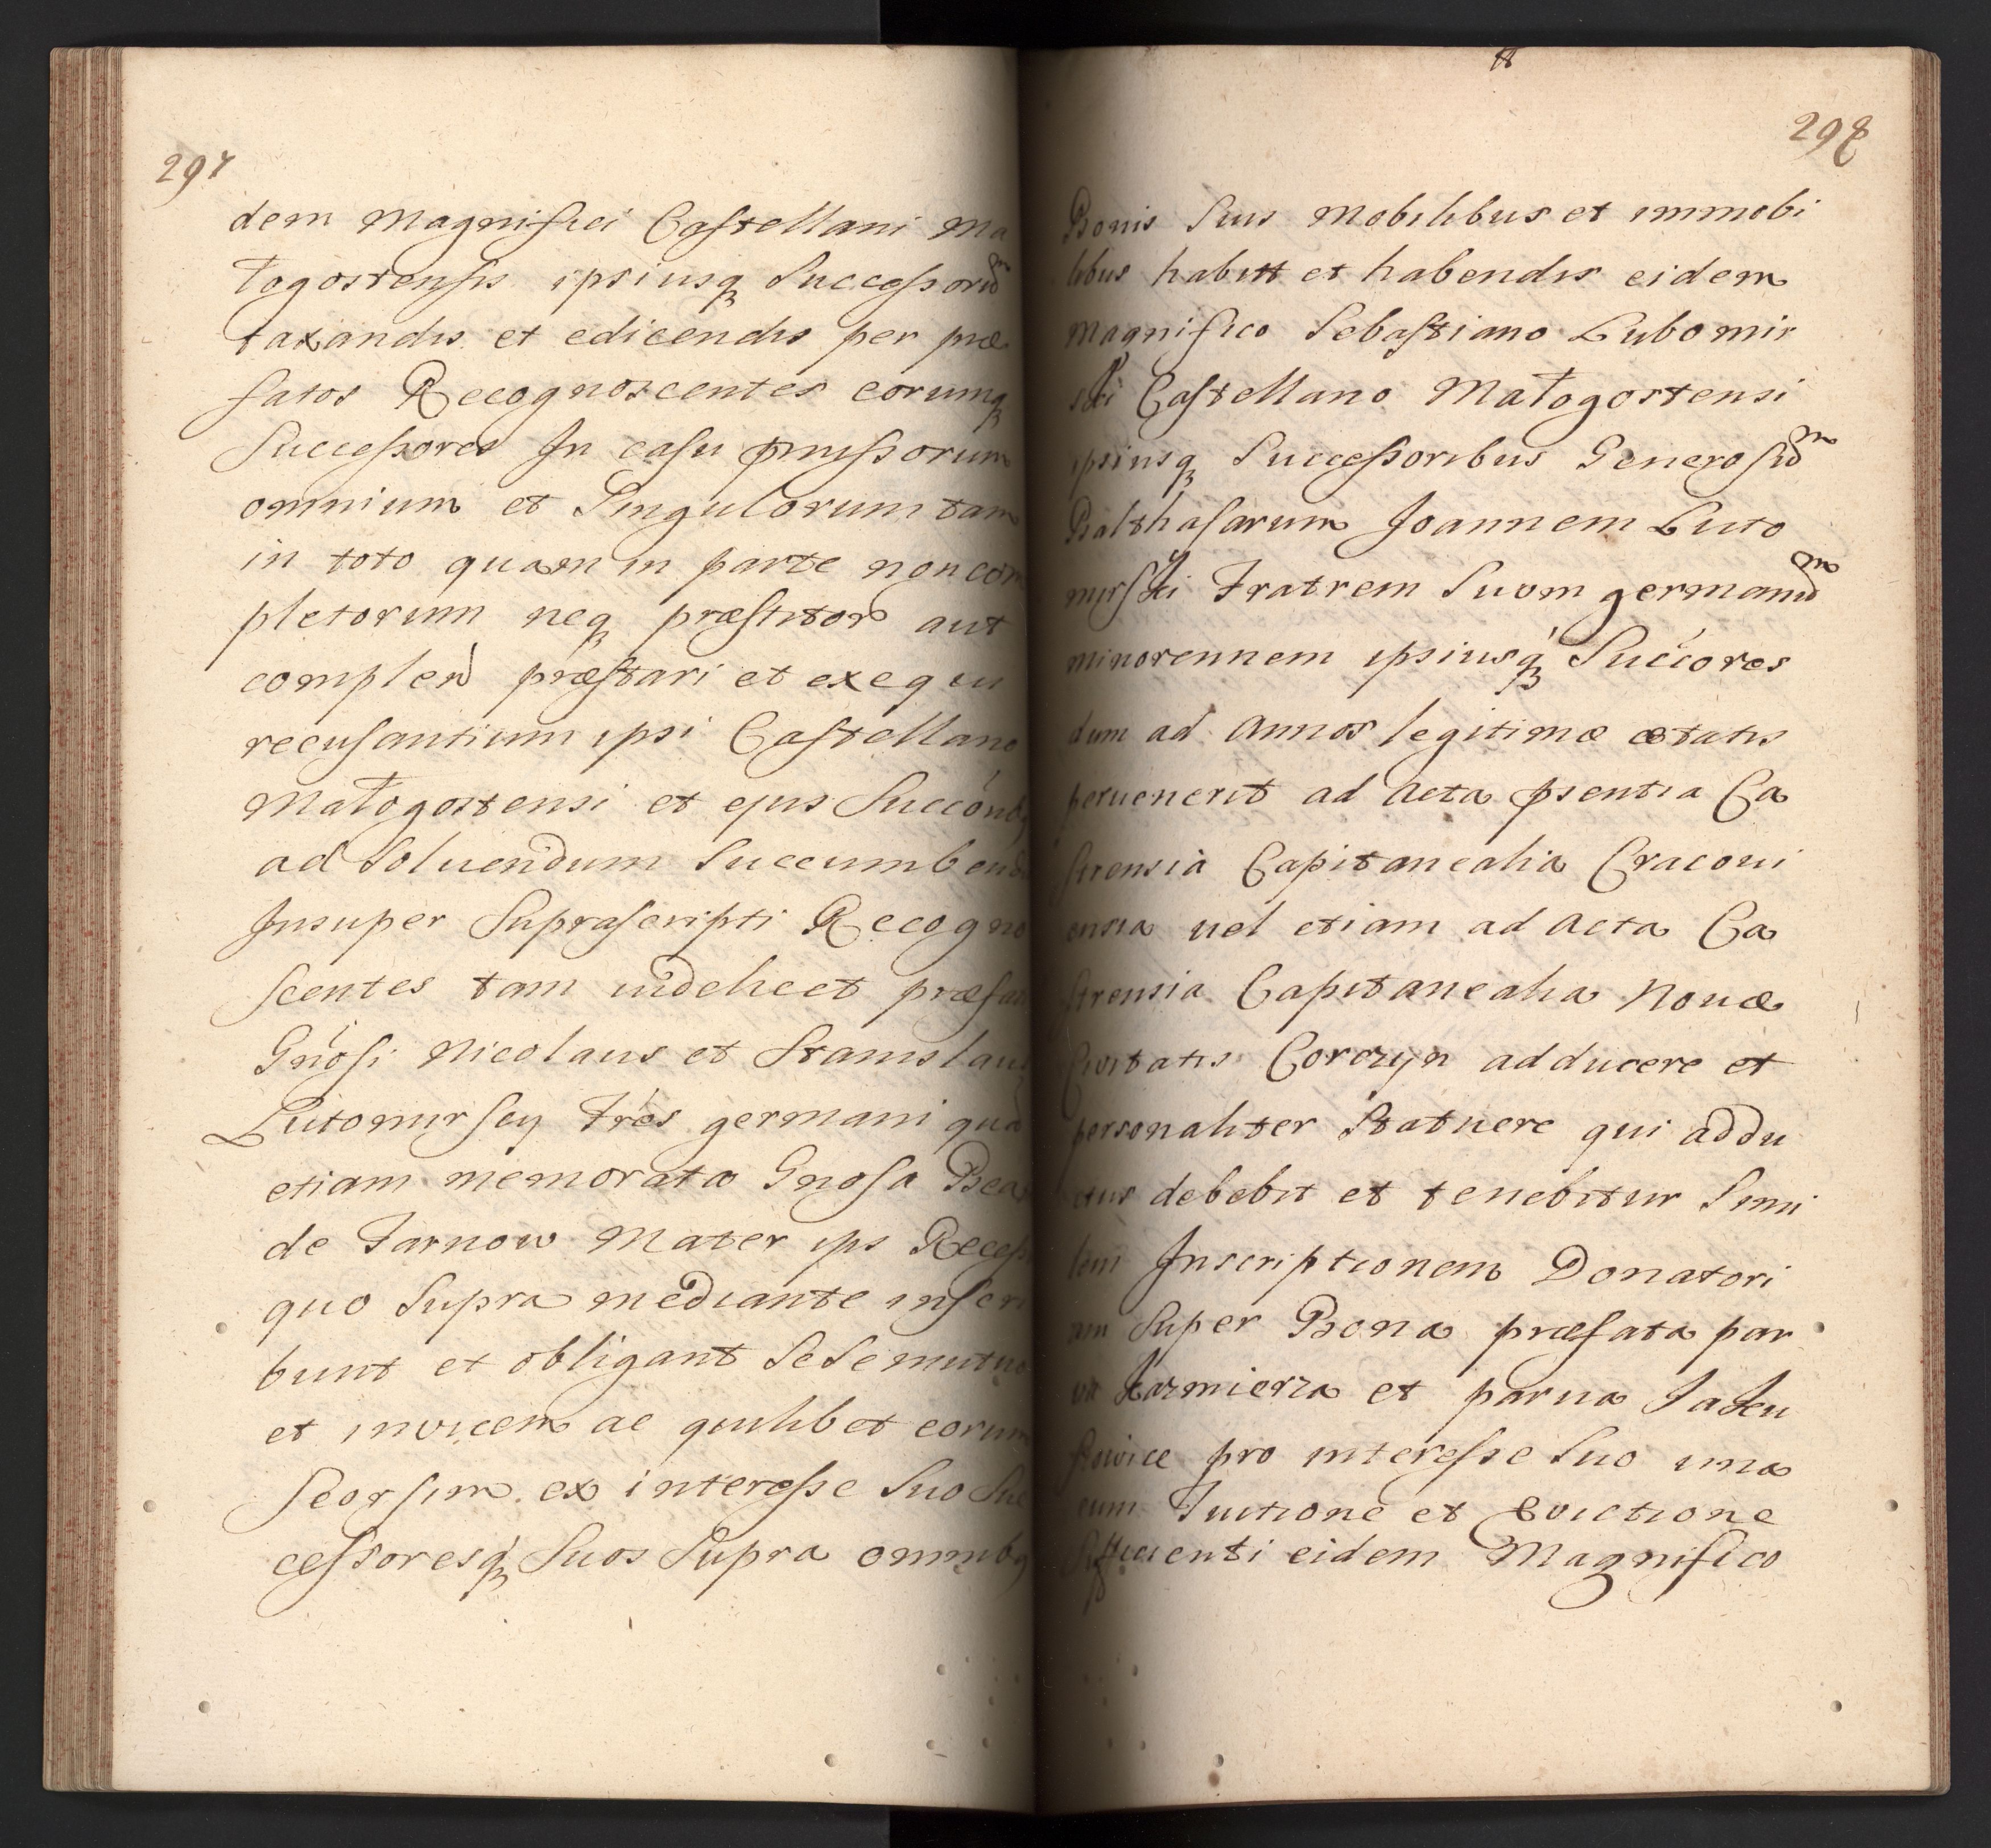 297
dem Magnifici Castellani Ma
łogostensis ipsiusq Successorum
taxandis et edicendis per præ
fatos Recognoscentes eorumq
Successores In casu pmissorum
omnium et Singulorum tam
in toto quam in parte non com
pletorum neq præstitor aut
complend præstari et exequi
recusantium ipsi Castellano
Małogostensi et ejus Succonbq
ad Soluendum Succumbend
Insuper Suprascripti Recogno
scentes tam uidelicet præfati
Gnosi Nicolaus et Stanislaus
Lutomirscy Fres germani qua
etiam memorata Gnosa Beat
de Tarnow Mater ips Recess
quo Supra mediante inscri
bunt et obligant Sese mutuo
et invicem ac quilibet eorum
Seorsim ex interesse Suo Suc
cessoresq Suos Supra omnibq
298
Bonis Suis Mobilibus et immobi
libus habitt et habendis eidem
Magnifico Sebastiano Lubomir
ski Castellano Małogostensi
ipsiusq Successoribus Generosum
Balthasarum Joannem Luto
mirski Fratrem Suom germanum
minorennem ipsiusq Succores
dum ad Annos legitimæ ætatis
peruenerit ad Acta psentia Ca
strensia Capitanealia Cracoui
ensia uel etiam ad Acta Ca
strensia Capitanealia Nouæ
Ciuitatis Corczyn adducere et
personaliter Statuere qui addu
ctus debebit et tenebitur Simi
lem Inscriptionem Donatori
am Super Bona præfata par
va Kazmierza et parua Jaku
szowice pro interesse Suo una
cum Tuitione et Evictione
Sufficienti eidem Magnifico